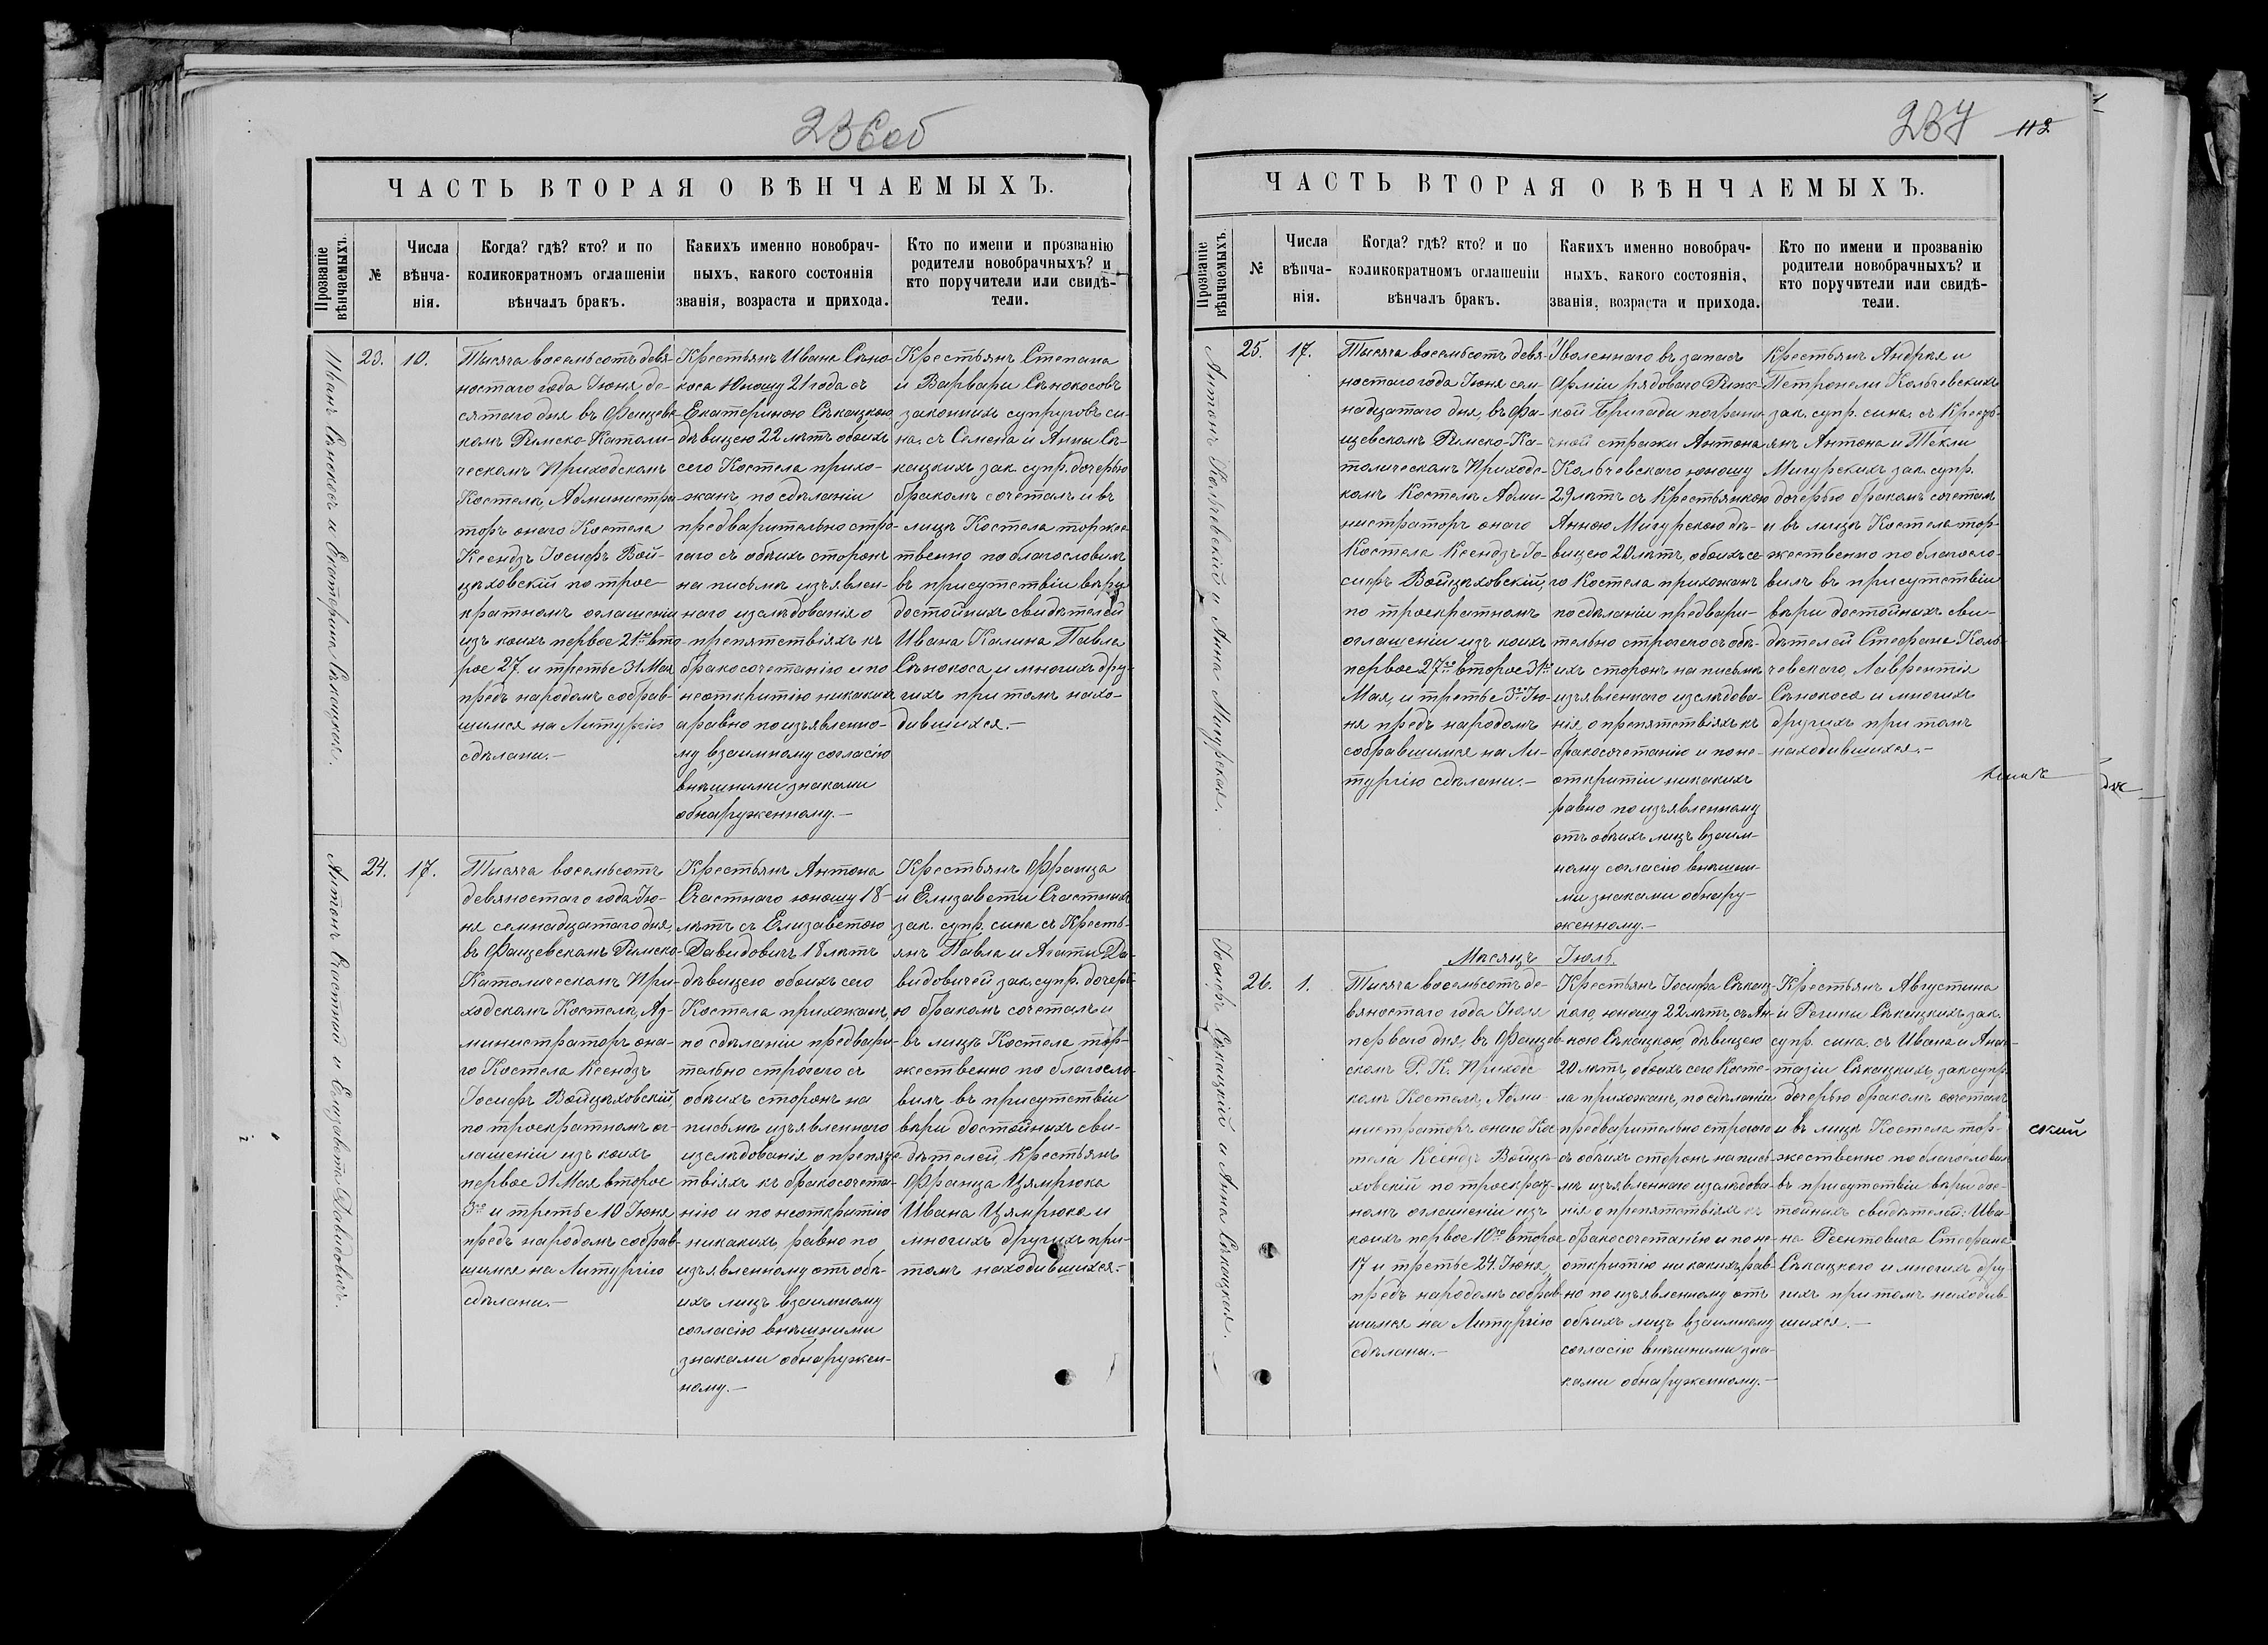 236об
ЧАСТЬ ВТОРАЯ О ВѢНЧАЕМЫХЪ.
Прозваніе вѣнчаемыхъ.
№
Числа вѣнча-
нія.
Когда? гдѣ? кто? и по
коликократномъ оглашеніи
вѣнчалъ бракъ.
Какихъ именно новобрач-
ныхъ, какого состоянія
званія, возраста и прихода.
Кто по имени и прозванію
родители новобрачныхъ? и
кто поручители или свидѣ-
тели.
Иванъ Сѣнокосъ и Екатерина Сѣкацкая.
23.
10.
Тысяча восемьсотъ девя-
ностаго года Іюня де-
сятаго дня въ Фащевс-
комъ Римско-Католи-
ческомъ Приходскомъ
Костелѣ, Администра-
торъ онаго Костела
Ксендзъ Іосифъ Вой-
цѣховскій по трое-
кратномъ оглашеніи
изъ коихъ первое 21го вто-
рое 27 и третье 31 Мая
предъ народомъ собрав-
шимся на Литургію
сдѣлани.—
Крестьянъ Ивана Сѣно-
коса Юношу 21 года съ
Екатериною Сѣкацкою
дѣвицею 22 лѣтъ обоихъ
сего Костела прихо-
жанъ по сдѣланіи
предварительно стро-
гаго съ обѣихъ сторонъ
на письмѣ изъявлен-
наго изслѣдованія о
препятствіяхъ къ
бракосочетанію и по
неоткритію никакихъ
а равно по изъявленно-
му взаимному согласію
внѣшними знаками
обнаруженному.—
Крестьянъ Степана
и Варвари Сѣнокосовъ
законнихъ супруговъ си-
на, съ Семена и Анны Сѣ-
кацкихъ зак. супр. дочерью
бракомъ сочеталъ и въ
лицѣ Костела торжес-
твенно поблагословилъ
въ присутствіи вѣри
достойнихъ свидѣтелей
Ивана Калина Павла
Сѣнокоса и многихъ дру-
гихъ при томъ нахо-
дившихся.—
Антонъ Счастный и Елизавета Давидовичъ.
24.
17.
Тысяча восемьсотъ
девяностаго года Ію-
ня семнадцатаго дня,
въ Фащевскомъ Римско-
Католическомъ При-
ходскомъ Костелѣ, Ад-
министраторъ она-
го Костела Ксендзъ
Іосифъ Войцѣховскій,
по троекратномъ ог-
лашеніи изъ коихъ
первое 31 Мая второе
3го и третье 10 Іюня
предъ народомъ собрав-
шимся на Литургію
сдѣлани.—
Крестьянъ Антона
Счастнаго юношу 18
лѣтъ съ Елизаветою
Давидовичъ 18 лѣтъ
дѣвицею обоихъ сего
Костела прихожанъ,
по сдѣланіи предвари-
тельно строгаго съ
обѣихъ сторонъ на
письмѣ изъявленнаго
изслѣдованія о препятс-
твіяхъ къ бракосочета-
нію и по неоткритію
никакихъ, равно по
изъявленному отъ обѣ-
ихъ лицъ взаимному
согласію внѣшними
знаками обнаружен-
ному.—
Крестьянъ Франца
и Елизавети Счастныхъ
зак. супр. сина съ Кресть-
янъ Павла и Агати Да-
видовичей зак. супр. дочерь-
ю бракомъ сочеталъ и
въ лицѣ Костела тор-
жественно поблагосло-
вилъ въ присутствіи
вѣри достойныхъ сви-
дѣтелей, Крестьянъ
Франца Цямрюка
Ивана Цямрюка и
многихъ другихъ при-
томъ находившихся.—
237
112
ЧАСТЬ ВТОРАЯ О ВѢНЧАЕМЫХЪ.
Прозваніе вѣнчаемыхъ.
№
Числа вѣнча-
нія.
Когда? гдѣ? кто? и по
коликократномъ оглашеніи
вѣнчалъ бракъ.
Какихъ именно новобрач-
ныхъ, какого состоянія,
званія, возраста и прихода.
Кто по имени и прозванію
родители новобрачныхъ? и
кто поручители или свидѣ-
тели.
Антонъ Кольчевскій и Анна Мигурская.
25.
17.
Тысяча восемьсотъ девя-
ностаго года Іюня сем-
надцатаго дня, въ Фа-
щевскомъ Римско-Ка-
толическомъ Приходс-
комъ Костелѣ Адми-
нистраторъ онаго
Костела Ксендзъ Іо-
сифъ Войцѣховскій,
по троекратномъ
оглашеніи изъ коихъ
первое 27го второе 31го
Мая, и третье 3го Ію-
ня предъ народомъ
собравшимся на Ли-
тургію сдѣлани.—
Уволеннаго въ запасъ
Арміи рядоваго Рижс-
кой Бригади погранич-
ной стражи Антона
Кольчевскаго юношу
29 лѣтъ съ Крестьянкою
Анною Мигурскою дѣ-
вицею 20 лѣтъ, обоихъ се-
го Костела прихожанъ
по сдѣланіи предвари-
тельно строгаго съ обѣ-
ихъ сторонъ на письмѣ
изъявленнаго изслѣдова-
нія, о препятствіяхъ къ
бракосочетанію и по не-
откритіи никакихъ
равно по изъявленному
отъ обѣихъ лицъ взаим-
ному согласію внѣшни-
ми знаками обнару-
женному.—
Крестьянъ Андрея и
Петронели Кольчевскихъ
зак. супр. сина, съ Кресть-
янъ Антона и Текли
Мигурскихъ зак. супр.
дочерью бракомъ сочеталъ
и въ лицѣ Костела тор-
жественно поблагосло-
вилъ въ присутствіи
вѣри достойныхъ сви-
дѣтелей Стефана Коль-
чевскаго, Лаврентія
Сѣнокоса и многихъ
другихъ при томъ
находившихся.—
Мѣсяцъ Іюль.
Іосифъ Сѣкацкій и Анна Сѣкацкая.
26.
1.
Тысяча восемьсотъ де-
вяностаго года Іюля
перваго дня, въ Фащев-
скомъ Р. К. Приходс-
комъ Костелѣ, Адми-
нистраторъ онаго Кос-
тела Ксендзъ Войцѣ-
ховскій по троекрат-
номъ оглашеніи изъ
коихъ первое 10го второе
17 и третье 24 Іюня,
предъ народомъ собрав-
шимся на Литургію
сдѣланы.—
Крестьянъ Іосифа Сѣкац-
каго, юношу 22 лѣтъ, съ Ан-
ною Сѣкацкою, дѣвицею
20 лѣтъ, обоихъ сего Косте-
ла прихожанъ, по сдѣланіи
предварительно строгаго
съ обѣихъ сторонъ на пись-
мѣ изъявленнаго изслѣдова-
нія о препятствіяхъ къ
бракосочетанію и по не-
откритію никакихъ, рав-
но по изъявленному отъ
обѣихъ лицъ взаимному
согласію внѣшними зна-
ками обнаруженному.—
Крестьянъ Августина
и Регины Сѣкацкихъ, зак.
супр. сина, съ Ивана и Анас-
тазіи Сѣкацкихъ, зак. супр.
дочерью бракомъ сочеталъ
и въ лицѣ Костела тор-
жественно поблагословилъ
въ присутствіи вѣри дос-
тойныхъ свидѣтелей: Ива-
на Реентовича Стефана
Сѣкацкого и многихъ дру-
гихъ при томъ находив-
шихся.—
ской